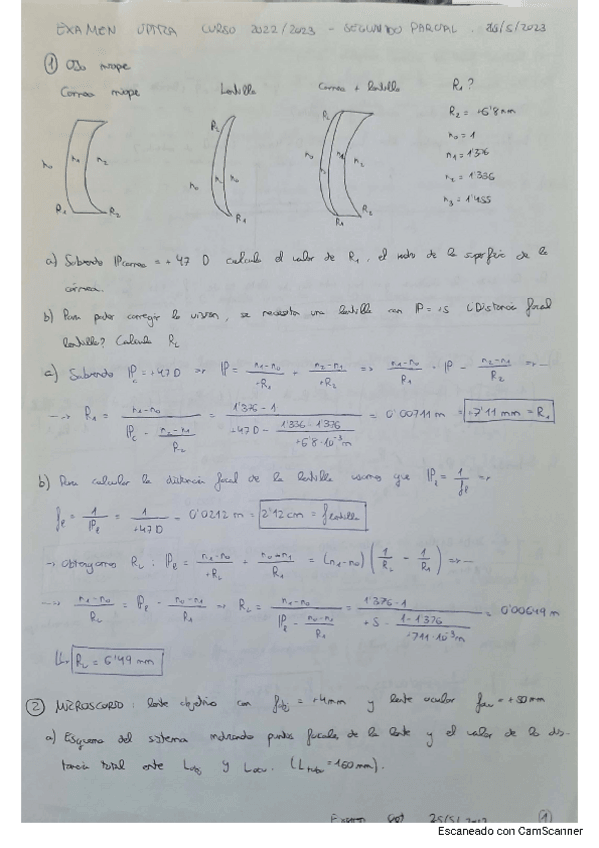 EXAMEN OPTICA CURSO 2022/2023 - SEGUNDO PARCIAL. 25/5/2023
① Ojo miope
Cornea miope Lentilla Cornea + lentilla R₁?
R₂ = +6'8 mm
n₀ = 1
n₁ = 1'376
n₂ = 1'336
n₃ = 1'455
n₀ n₁ n₂ R₁ R₂
R_L n₀ n n₀ R₁
R_L n₀ n₁ n₂ R₁ R₂
a) Sabiendo IPcornea = + 47 D calcula el valor de R₁, el radio de la superficie de la
córnea.
b) Para poder corregir la visión, se necesita una lentilla con IP = +5 ¿Distancia focal
lentilla? Calcula R_L
a) Sabiendo IP_c = +47 D → IP = (n₁-n₀)/(+R₁) + (n₂-n₁)/(+R₂) => (n₁-n₀)/R₁ = IP - (n₂-n₁)/R₂ =>
→ R₁ = (n₁-n₀)/(IP_c - (n₂-n₁)/R₂) = (1'376 - 1)/(+47 D - (1'336 - 1'376)/(+6'8·10⁻³ m)) = 0'00711 m = +7'11 mm = R₁
b) Para calcular la distancia focal de la lentilla usamos que IP_l = 1/f_l =>
f_l = 1/IP_l = 1/(+47 D) = 0'0212 m = 2'12 cm = f lentilla
→ obtengamos R_L : IP_l = (n₁-n₀)/(+R_L) + (n₀-n₁)/R₁ = (n₁-n₀)(1/R_L - 1/R₁) =>
→ (n₁-n₀)/R_L = IP_l - (n₀-n₁)/R₁ => R_L = (n₁-n₀)/(IP_l - (n₀-n₁)/R₁) = (1'376-1)/(+5 - (1-1'376)/(+7'11·10⁻³ m)) = 0'00649 m
R_L = 6'49 mm
② MICROSCOPIO : lente objetivo con f_obj = +4mm y lente ocular f_ocu = +30mm
a) Esquema del sistema indicando puntos focales de la lente y el valor de la dis-
tancia total entre L_obj y L_ocu. (L_tubo = 160 mm).
25/5/2023 ①
Escaneado con CamScanner